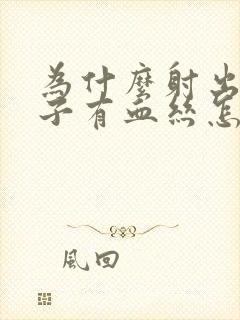 為什麼射出
子有血丝怎
風回